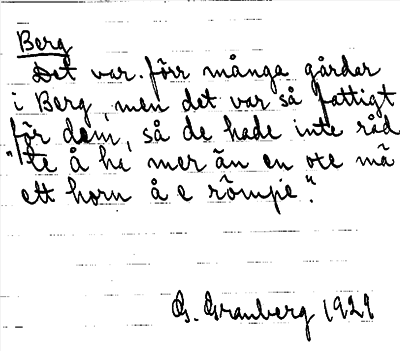 Berg
Det var förr många gårdar
i Berg, men det var så fattigt
för dem, så de hade inte råd
"te å ha mer än en oxe mä
ett horn å e römpe".
G. Granberg 1929